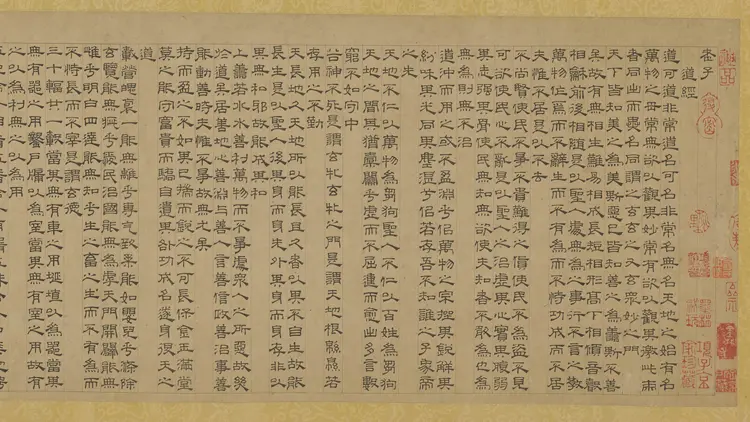 老子
道經
道可道非常道名可名非常名無名天地之始有名
萬物之母常無欲以觀其妙常有欲以觀其徼此兩
者同出而異名同謂之玄玄之又玄衆妙之門
天下皆知美之為美斯惡已皆知善之為善斯不善
矣故有無相生難易相成長短相形高下相傾音聲
相和前後相隨是以聖人處無為之事行不言之教
萬物作焉而不辭生而不有為而不恃功成而不居
夫惟不居是以不去
不尚賢使民不爭不貴難得之貨使民不為盜不見
可欲使心不亂是以聖人之治虛其心實其腹弱
其志強其骨使民無知無欲使夫知者不敢為也為
無為則無不治
道沖而用之或不盈淵兮似萬物之宗挫其銳解其
紛和其光同其塵湛兮似若存吾不知誰之子象帝
之先
天地不仁以萬物為芻狗聖人不仁以百姓為芻狗
天地之間其猶橐籥乎虛而不屈動而愈出多言數
窮不如守中
谷神不死是謂玄牝玄牝之門是謂天地根緜緜若
存用之不勤
天長地久天地所以能長且久者以其不自生故能
長生是以聖人後其身而身先外其身而身存非以
其無私耶故能成其私
上善若水水善利萬物而不爭處衆人之所惡故幾
於道矣居善地心善淵與善人言善信政善治事善
能動善時夫惟不爭故無尤矣
持而盈之不如其已揣而銳之不可長保金玉滿堂
莫之能守富貴而驕自遺其咎功成名遂身退天之
道
載營魄抱一能無離乎專氣致柔能如嬰兒乎滌除
玄覽能無疵乎愛民治國能無為乎天門開闔能無
雌乎明白四達能無知乎生之畜之生而不有為而
不恃長而不宰是謂玄德
三十輻共一轂當其無有車之用埏埴以為器當其
無有器之用鑿戶牖以為室當其無有室之用故有
之以為利無之以為用